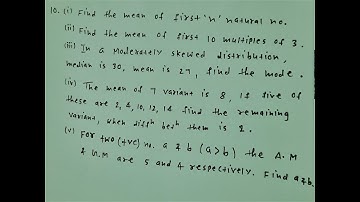 10. (i) Find the mean of first 'n' natural no.
(ii) Find the mean of first 10 multiples of 3.
(iii) In a Moderattly skewed distribution,
median is 30, mean is 27, find the mode.
(iv) The mean of 7 variant is 8, if five of
these are 2, 4, 10, 12, 14 find the remaining
variant, when diffn betn them is 2.
(v) For two (+ve) no. a & b (a>b) the A.M
& G.M are 5 and 4 respectively. Find a & b.